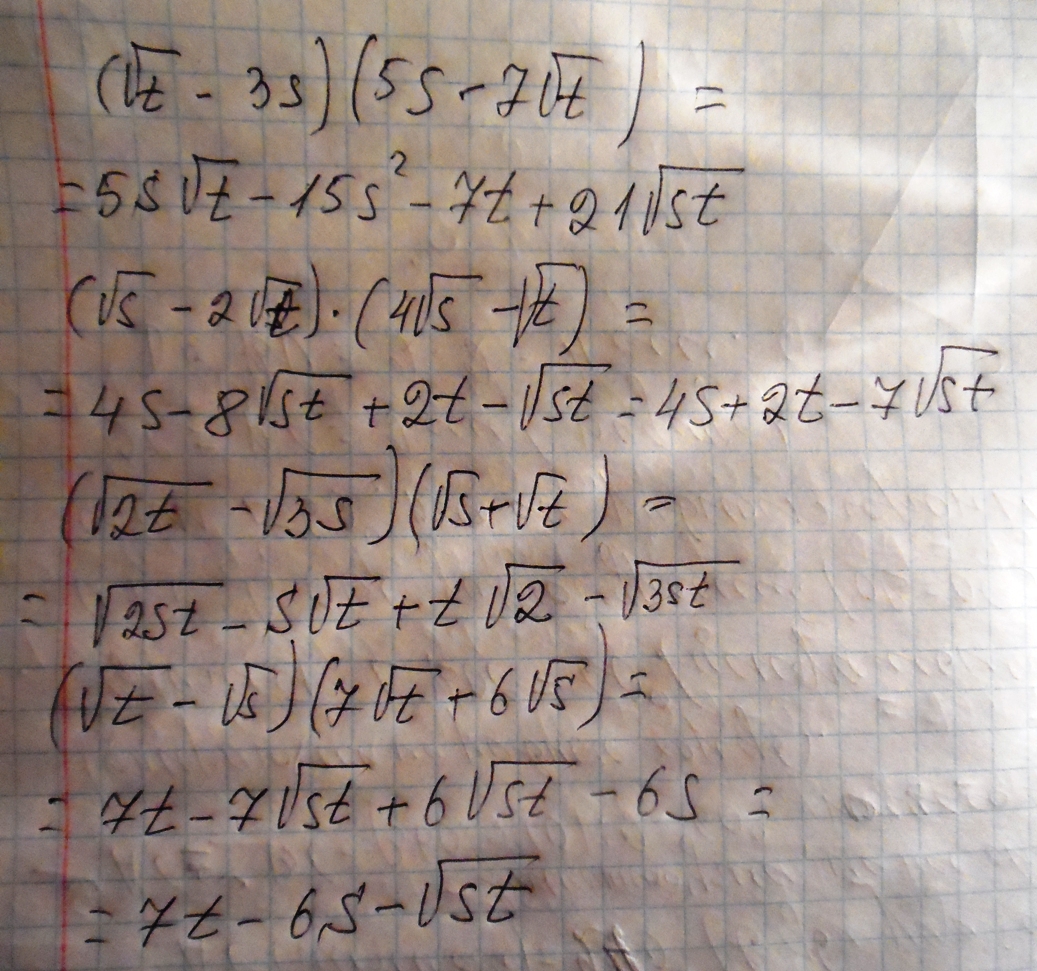 (√t - 3s)(5s - 7√t) =
= 5s√t - 15s² - 7t + 21√st
(√s - 2√t)·(4√s - √t) =
= 4s - 8√st + 2t - √st = 4s + 2t - 7√st
(√2t - √3s)(√s + √t) =
= √2st - s√t + t√2 - √3st
(√t - √s)(7√t + 6√s) =
= 7t - 7√st + 6√st - 6s =
= 7t - 6s - √st